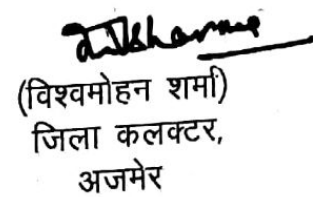 (विश्वमोहन शर्मा)
जिला कलक्टर,
अजमेर